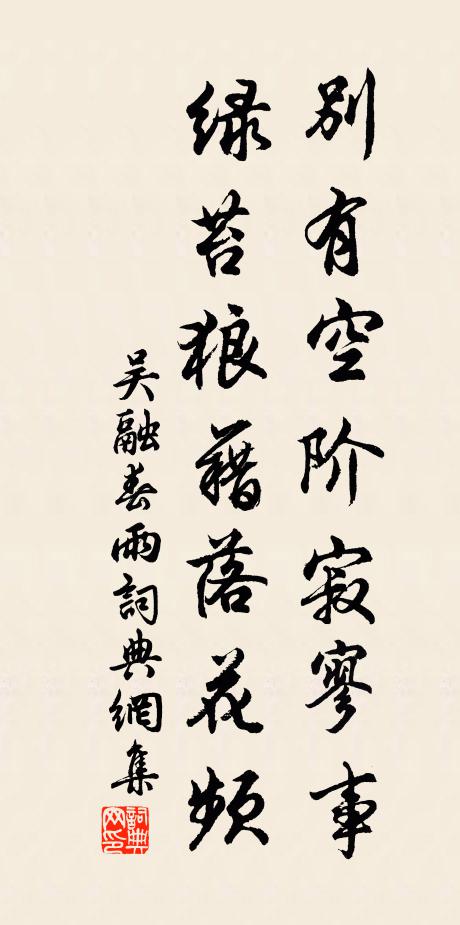 别有空阶寂寥事
绿苔狼藉落花频
吴融春雨詞典網集
詞典
网印